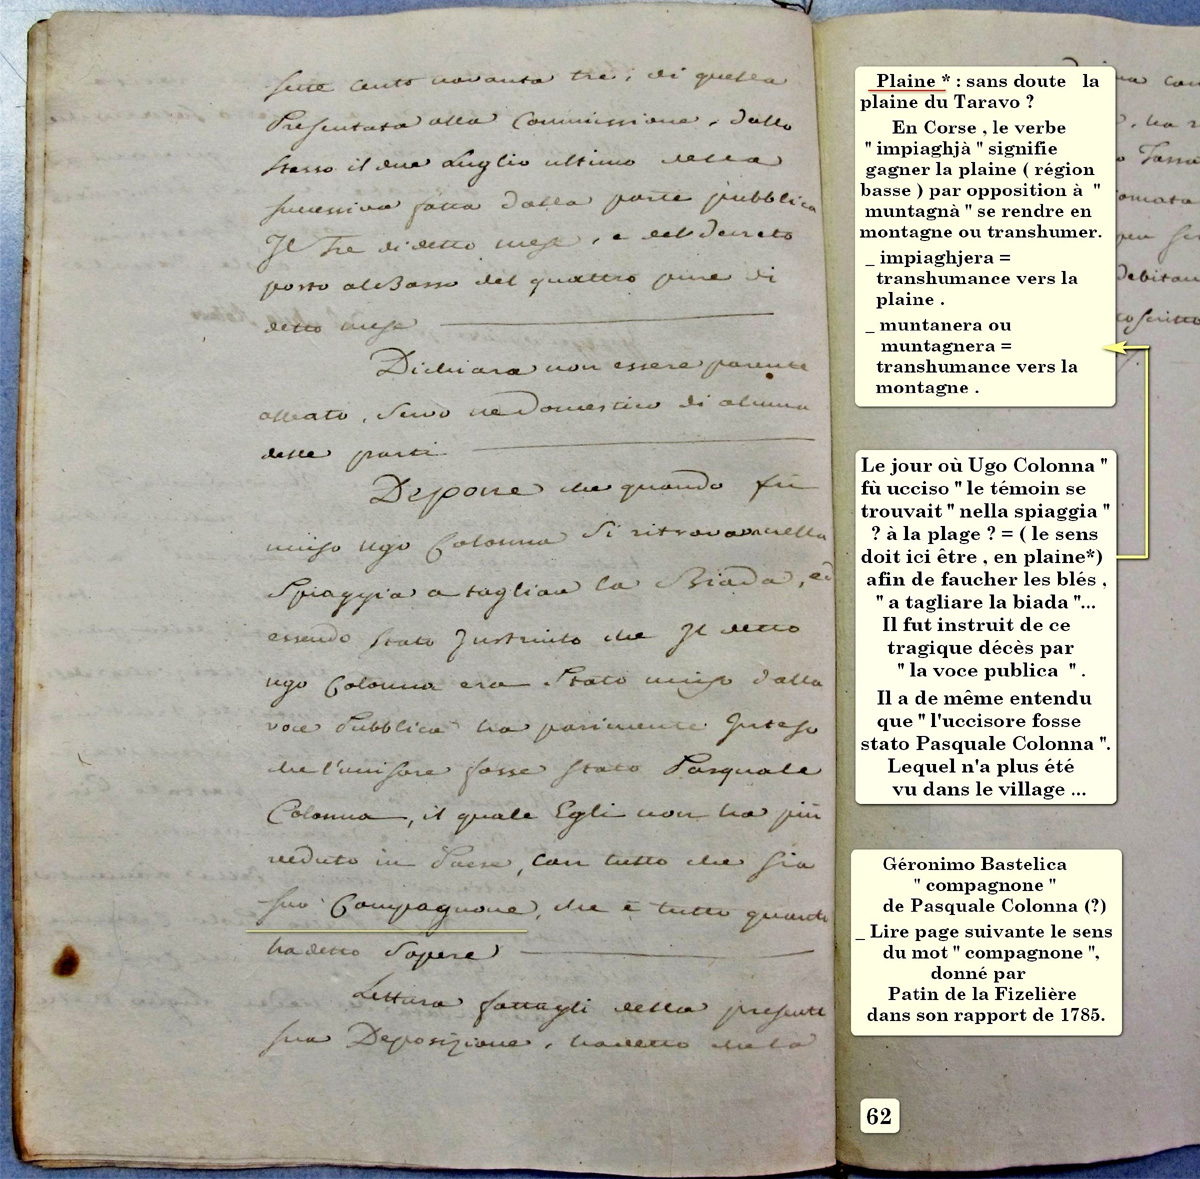 sette cento novanta tre, di quella
Presentata alla Commissione, dallo
stesso il due Luglio ultimo della
successiva fatta dalla parte pubblica
Il Tre di detto mese, e del Decreto
posto al Basso del quattro pure di
detto mese
Dichiara non essere parente
alleato, servo ne Domestico di alcuna
delle parti
Depone che quando fù
ucciso Ugo Colonna si ritrovava nella
Spiaggia a tagliare la Biada, ed
essendo stato Instruito che Il detto
Ugo Colonna era stato ucciso dalla
voce Pubblica ha parimente Inteso
che l'uccisore fosse stato Pasquale
Colonna, il quale Egli non ha più
veduto in Paese, con tutto che sia
suo Compagnone, che è tutto quanto
ha detto Sapere
Lettura fattagli della presente
sua Deposizione, ha detto che la
Plaine * : sans doute la
plaine du Taravo ?
En Corse , le verbe
" impiaghjà " signifie
gagner la plaine ( région
basse ) par opposition à "
muntagnà " se rendre en
montagne ou transhumer.
_ impiaghjera =
transhumance vers la
plaine .
_ muntanera ou
muntagnera =
transhumance vers la
montagne .
Le jour où Ugo Colonna "
fù ucciso " le témoin se
trouvait " nella spiaggia "
? à la plage ? = ( le sens
doit ici être , en plaine*)
afin de faucher les blés ,
" a tagliare la biada "...
Il fut instruit de ce
tragique décès par
" la voce publica " .
Il a de même entendu
que " l'uccisore fosse
stato Pasquale Colonna ".
Lequel n'a plus été
vu dans le village ...
Géronimo Bastelica
" compagnone "
de Pasquale Colonna (?)
_ Lire page suivante le sens
du mot " compagnone ",
donné par
Patin de la Fizelière
dans son rapport de 1785.
62